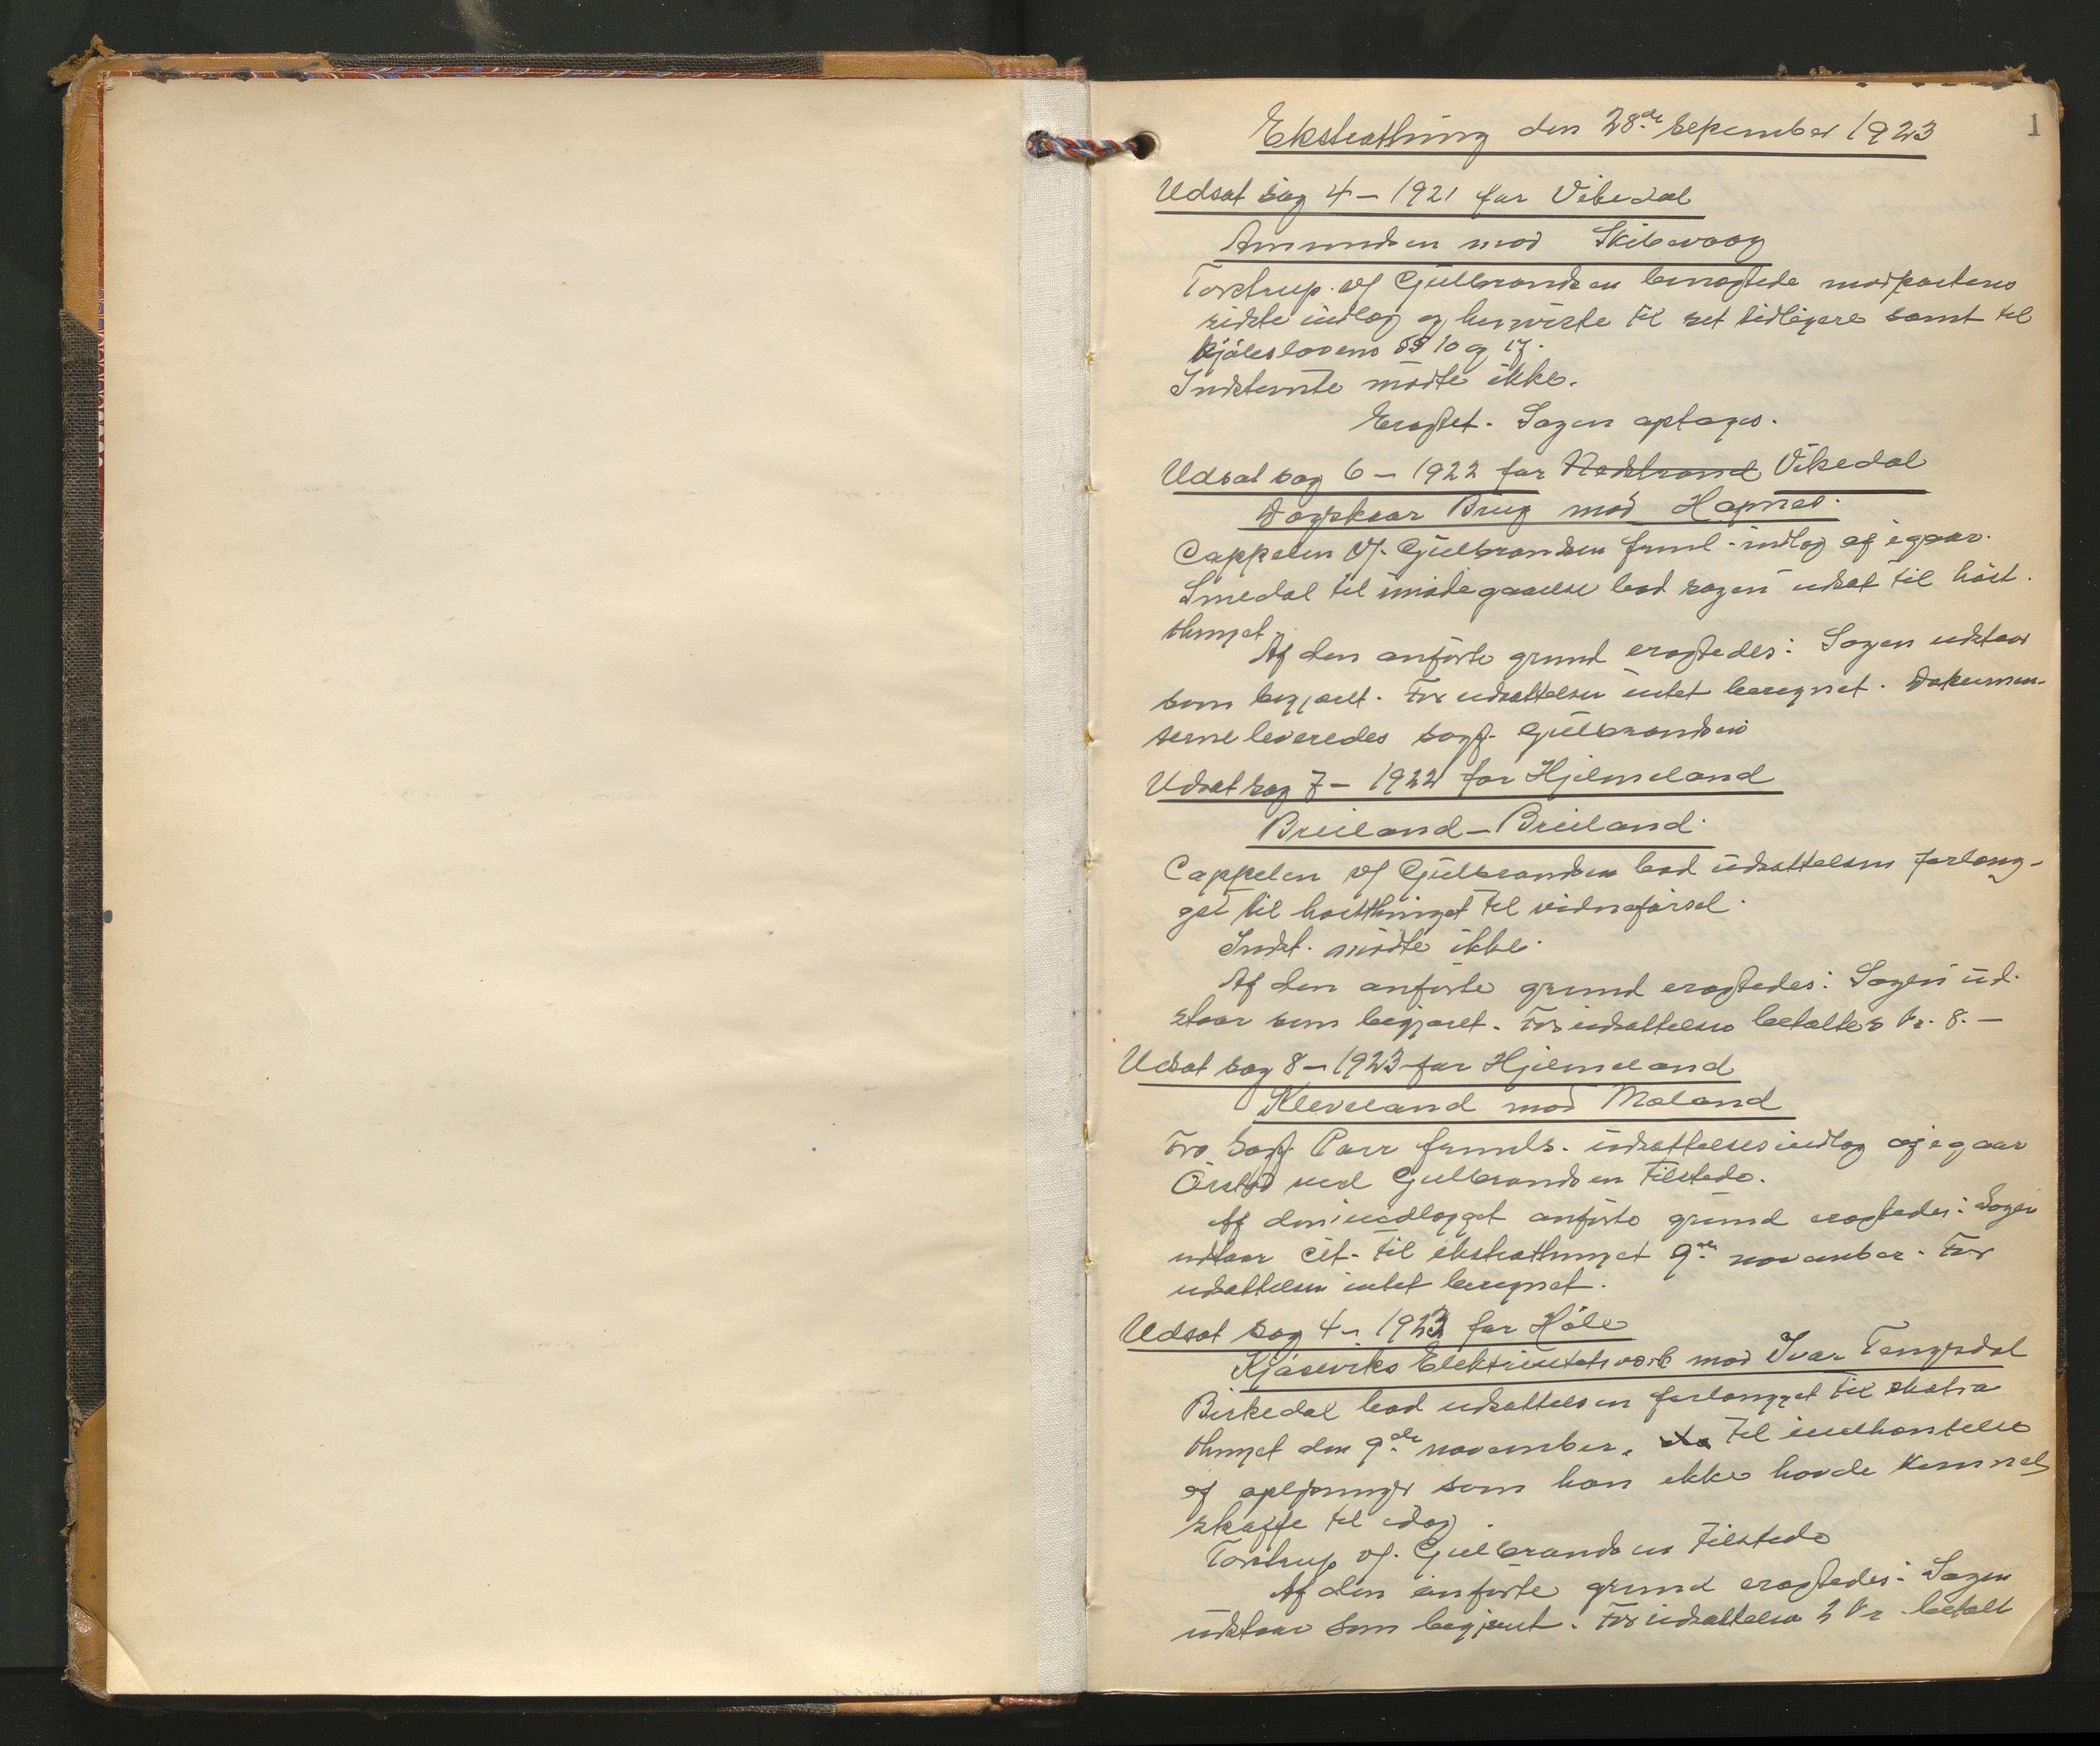 Ekstrathing den 28de september 1923
1
Udsat sag 4 – 1921 for Vikedal
Amundsen mod Skibevaag
Torstrup vf Gulbrandsen benegtede modpartens
sidste indlæg og henviste til set tidligere samt til
kjøleslovens §§ 10 og 17.
Indstemte mødte ikke.
Eragtet. Sagen optages.
Udsat sag 6 – 1922 for Nedstrand Vikedal
Dagskaar Brug mod Hapnes.
Cappelen vf. Gulbrandsen freml. indlæg af igaar.
Smedal til imødegaaelse bad sagen udsat til høst-
thinget.
Af den anførte grund eragtedes: Sagen udstaar
som begjært. For udsættelsen intet beregnet. Dokumen-
terne leveredes sagf. Gulbrandsen
Udsat sag 7 – 1922 for Hjelmeland
Breiland – Breiland.
Cappelen vf Gulbrandsen bad udsættelsen forlæng-
get til høstthinget til vidneførsel.
Indst. mødte ikke.
Af den anførte grund eragtedes: Sagen ud-
staar som begjært. For udsættelsen betaltes kr. 8.–
Udsat sag 8 – 1923 for Hjelmeland
Kleveland mod Mæland
Fra sagf. Parr fremls. udsættelsesindlæg af igaar
Ørstad ved Gulbrandsen tilstede.
Af den i indlægget anførte grund eragtedes: Sagen
udstaar cit. til ekstrathinget 9de november. For
udsættelsen intet beregnet.
Udsat sag 4 – 1923 for Høle
Kjoseviks Elektricitetsverk mod Ivar Tengesdal
Birkedal bad udsættelsen forlænget til ekstra
thinget den 9de november, til indhentelse
af oplysninger som han ikke havde kunnet
skaffe til idag.
Torstrup vf. Gulbrandsen tilstede
Af den anførte grund eragtedes: Sagen
udstaar som begjært. For udsættelsen 2 kr. betalt